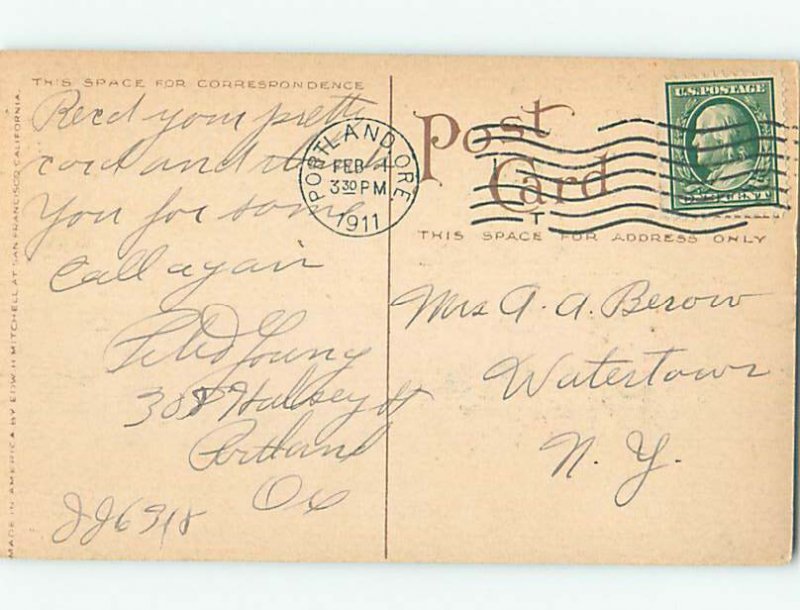 THIS SPACE FOR CORRESPONDENCE
Recd your pretty
card and thank
You for same
Call again
Young
308 Halsey St
Portland
Ore
JJ6318
MADE IN AMERICA BY EDW. H. MITCHELL AT SAN FRANCISCO, CALIFORNIA.
PORTLAND, ORE
FEB
3 30 PM
1911
Post
Card
U.S. POSTAGE
T
THIS SPACE FOR ADDRESS ONLY
Mrs A. A. Berow
Watertown
N. Y.